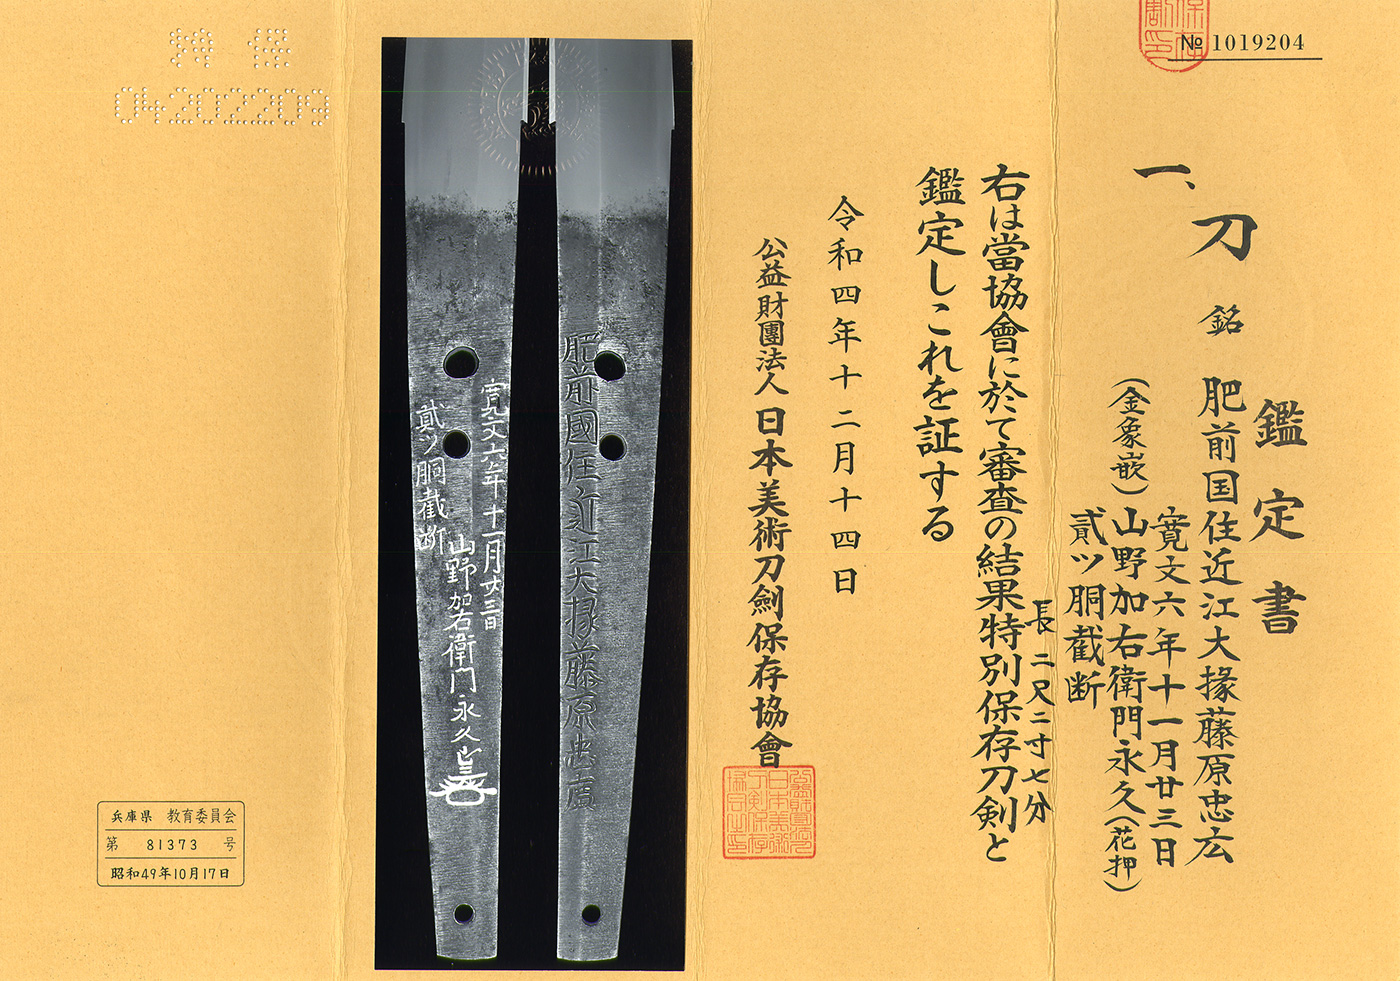 № 1019204
鑑定書
一、刀 銘 肥前国住近江大掾藤原忠広
寛文六年十一月廿三日
(金象嵌)山野加右衛門永久(花押)
貳ツ胴截断
長 二尺二寸七分
右は當協會に於て審査の結果特別保存刀剣と
鑑定しこれを証する
令和四年十二月十四日
公益財團法人 日本美術刀劍保存協會
肥前國住近江大掾藤原忠廣
寛文六年十一月廿三日
山野加右衛門永久
貳ツ胴截断
04202209
兵庫県 教育委員会
第 81373 号
昭和49年10月17日